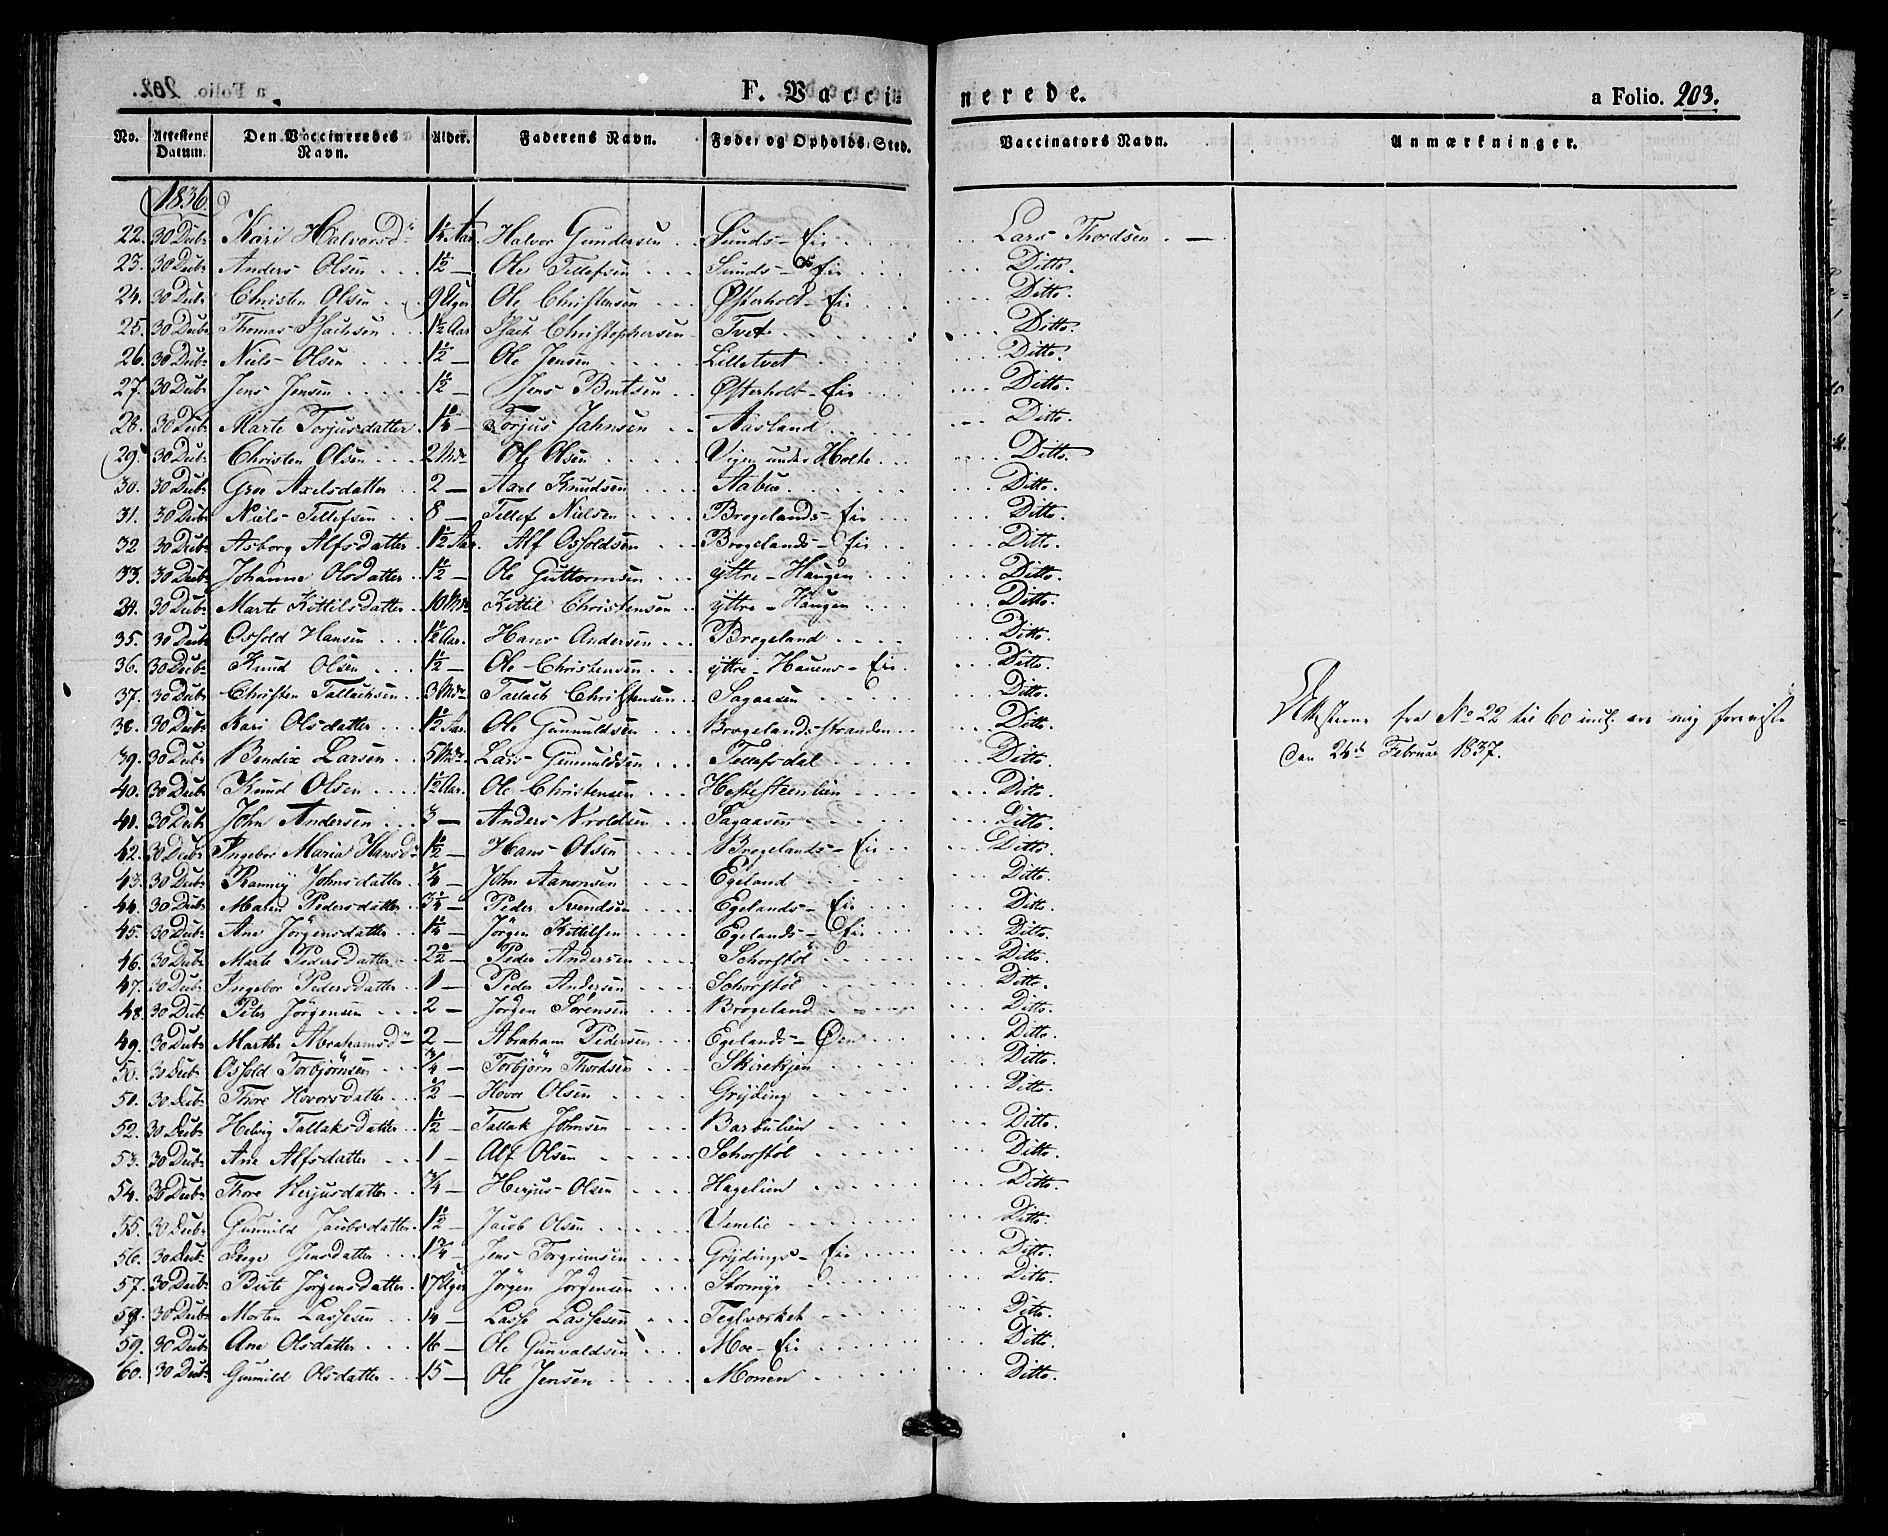 F. Vaccinerede. a Folio. 203.
No. Attestens Datum. Den Vaccineredes Navn. Alder. Faderens Navn. Føde- og Opholds-Sted. Vaccinators Navn. Anmærkninger.
1836.
22. 30 Decbr Kari Halvorsd. 1½ Aar. Halvor Gundersen Sunds-Eie Lars Thordsen
23. 30 Decbr Anders Olsen 1½ — Ole Tellefsen Sunds-Eie Ditto.
24. 30 Decbr Christen Olsen 9 Uger Ole Christensen Østerholt-Eie Ditto.
25. 30 Decbr Thomas Isachsen 1½ Aar Isach Christophersen Tvet Ditto.
26. 30 Decbr Niels Olsen 1½ — Ole Jensen Lilletvet Ditto.
27. 30 Decbr Jens Jensen 1½ — Jens Bentsen Østerholt-Eie Ditto.
28. 30 Decbr Marte Torjusdatter — Torjus Jahnsen Aasland Ditto.
29. 30 Decbr Christen Olsen 2 Mdr Ole Olsen under Holte Ditto.
30. 30 Decbr Groe Axelsdatter 2 — Axel Knudsen Aabue Ditto.
31. 30 Decbr Niels Tellefsen 8 — Tellef Nielsen Brogelands-Eie Ditto.
32 30 Decbr Asborg Alfsdatter 1½ Aar. Alf Osfoldsen Brogelands-Eie Ditto.
33. 30 Decbr Johanne Olsdatter 1½ — Ole Guttormsen yttre-Haugen Ditto.
34. 30 Decbr Marte Kittilsdatter 10 Mdr Kittil Christensen yttre-Haugen Ditto.
35. 30 Decbr Osfold Hansen 1½ Aar. Hans Andersen Brogeland Ditto.
36. 30 Decbr Knud Olsen 1½ — Ole Christensen yttre-Hauens-Eie Ditto.
37. 30 Decbr Christen Tallachsen 3 Mdr Tallach Christensen Sagaasen Ditto.
38. 30 Decbr Kari Olsdatter 1½ Aar. Ole Gunnuldsen Brogelandsstranden Ditto.
39. 30 Decbr Bendix Larsen 5 Mdr. Lars Gunnuldsen Tellefsdal Ditto.
40. 30 Decbr Knud Olsen 1½ Aar. Ole Christensen Hestesteenlien Ditto.
41. 30 Decbr John Andersen 3 — Anders Nroldsen Sagaasen Ditto.
42. 30 Decbr Ingebor Maria Hansd. 1½ — Hans Olsen Brogelands-Eie Ditto.
43. 30 Decbr Ranney Johnsdatter — John Aanonsen Egeland Ditto.
44. 30 Decbr Maren Pedersdatter 3¼ — Peder Svendsen Egelands-Eie Ditto.
45. 30 Decbr Ane Jörgensdatter 1¼ — Jörgen Kittilsen Egelands-Eie Ditto.
46. 30 Decbr Marte Pedersdatter 2½ — Peder Andersen Schorstöl Ditto.
47. 30 Decbr Ingebor Pedersdatter 1 — Peder Andersen Schorstöl Ditto.
48. 30 Decbr Peter Jörgensen 2 — Jörgen Sörensen Brogeland Ditto.
49. 30 Decbr Marthe Abrahamsd. 2 — Abraham Pedersen Egelands-Øen Ditto.
50. 30 Decbr Osfold Torbjörnsen ¾ — Torbjörn Thordsen Skirekjen Ditto.
51. 30 Decbr Thore Hovorsdatter ½ — Hovor Olsen Gryding Ditto.
52. 30 Decbr Helvig Tallaksdatter 1½ — Tallak Johnsen Barbulien Ditto.
53. 30 Decbr Ane Alfsdatter 1 — Alf Olsen Schorstöl Ditto.
54. 30 Decbr Thore Herjusdatter ¾ — Herjus Olsen Hagelien Ditto.
55. 30 Decbr Gunnild Jacobsdatter 1½ — Jacob Olsen Venelie Ditto.
56. 30 Decbr Jensdatter 1¾ Jens Torgrimsen Grydings-Eie Ditto.
57. 30 Decbr Birte Jörgensdatter 17 Uger Jörgen Jörgensen Stormyr Ditto.
58. 30 Decbr Morten Lassesen 14 — Lasse Lassesen Teglværket Ditto.
59. 30 Decbr Ane Olsdatter 16 — Ole Gunvaldsen Moe-Eie Ditto.
60. 30 Decbr Gunnild Olsdatter 15 — Ole Jensen Monen Ditto.
Attesterne fra No 22 til 60 incl. ere mig foreviste
den 24de Februar 1837.